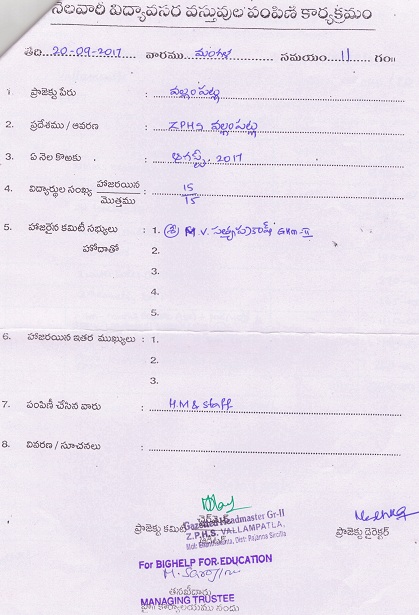 నెలవారీ విద్యావసర వస్తువుల పంపిణీ కార్యక్రమం
తేది. 20-09-2017 వారము మంగళ సమయం 11 గం॥
1. ప్రాజెక్టు పేరు : వల్లంపట్ల
2. ప్రదేశము / ఆవరణ : ZPHS వల్లంపట్ల
3. ఏ నెల కొఱకు : ఆగష్ట్. 2017
4. విద్యార్థుల సంఖ్య హాజరయిన : 15
మొత్తము 15
5. హాజరైన కమిటీ సభ్యులు : 1. M.V. GHM-II
హోదాతో 2.
3.
4.
5.
6. హాజరయిన ఇతర ముఖ్యులు : 1.
2.
3.
7. పంపిణీ చేసిన వారు : H.M & Staff
8. వివరణ / సూచనలు :
ప్రాజెక్టు కమిటీ ఛైర్మైన్ ప్రాజెక్టు డైరెక్టర్
Gazetted Headmaster Gr-II
Z.P.H.S. VALLAMPATLA,
Dist: Rajanna Sircilla
For BIGHELP FOR EDUCATION
M. Sarojini
తనిఖీదారు
MANAGING TRUSTEE
కార్యాలయము నందు